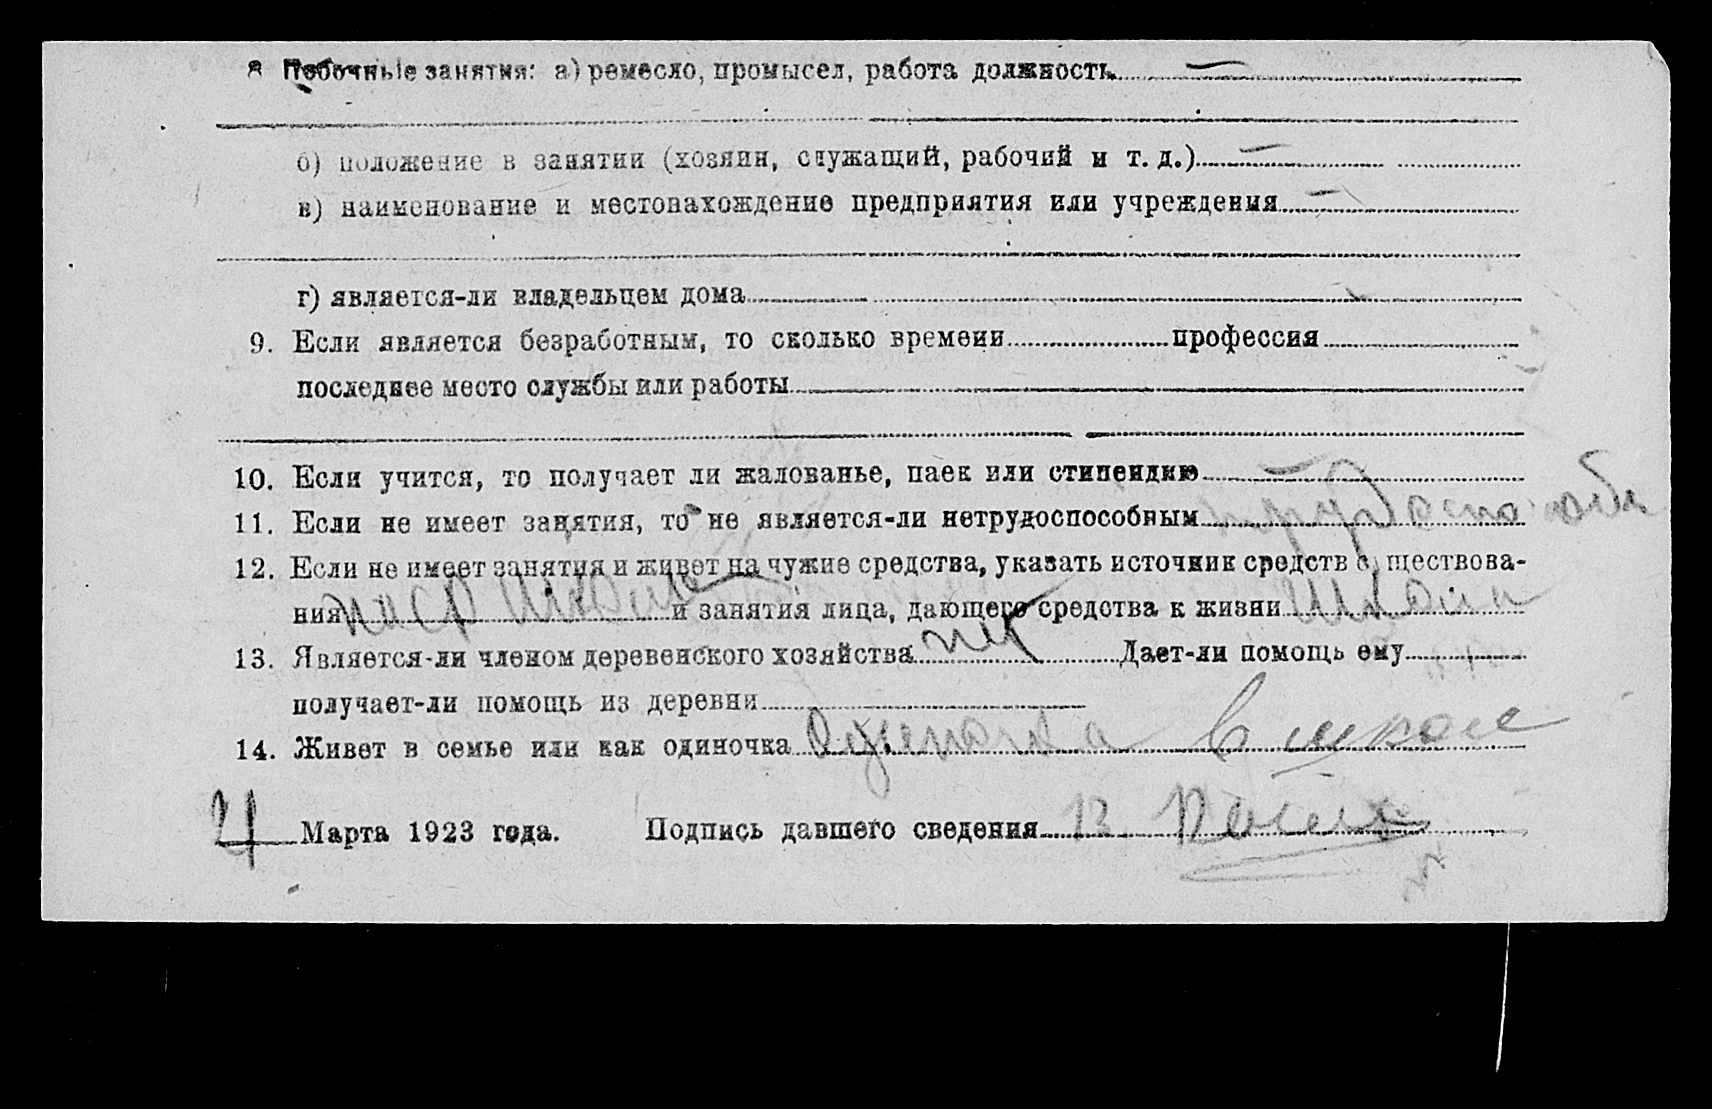 8 Побочные занятия: а) ремесло, промысел, работа должность —
б) положение в занятии (хозяин, служащий, рабочий и т. д.) —
в) наименование и местонахождение предприятия или учреждения —
г) является-ли владельцем дома
9. Если является безработным, то сколько времени профессия
последнее место службы или работы
10. Если учится, то получает ли жалованье, паек или стипендию —
11. Если не имеет занятия, то не является-ли нетрудоспособным
12. Если не имеет занятия и живет на чужие средства, указать источник средств существова-
ния и занятия лица, дающего средства к жизни
13. Является-ли членом деревенского хозяйства нет Дает-ли помощь ему
получает-ли помощь из деревни
14. Живет в семье или как одиночка Одиночка в школе
4 Марта 1923 года. Подпись давшего сведения